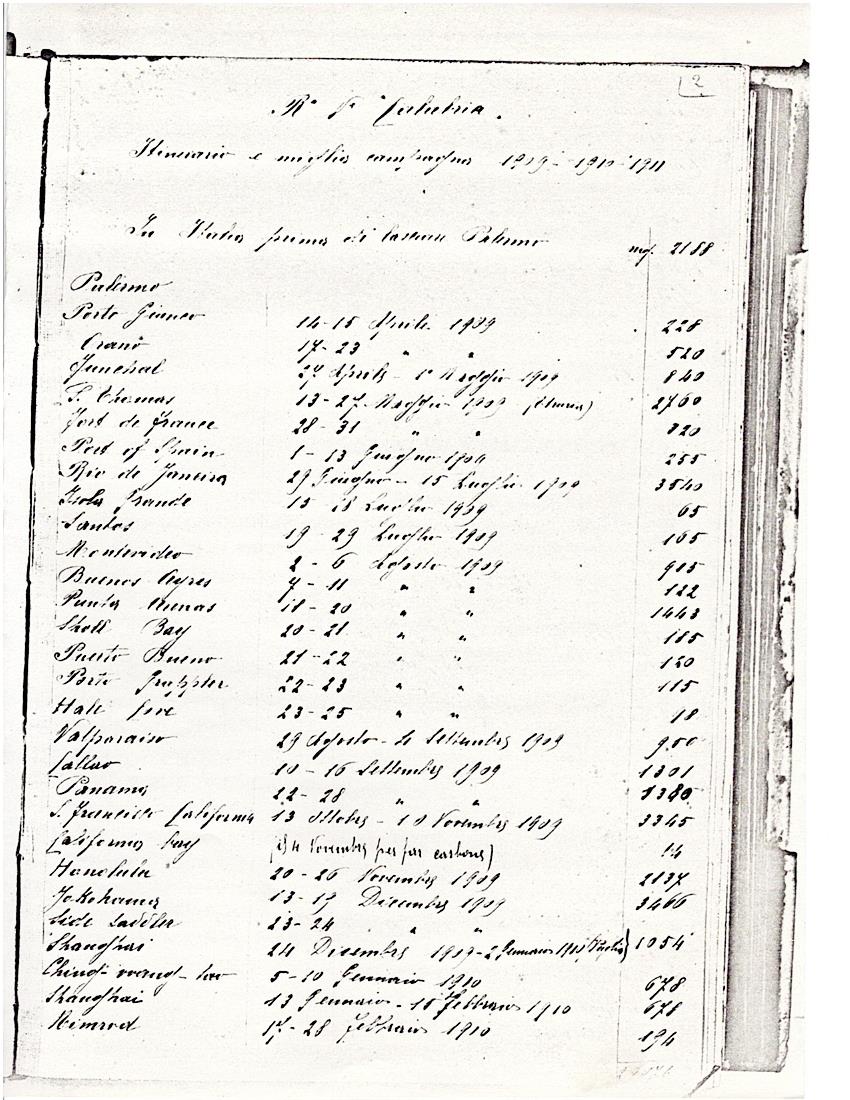 2
Ra Fa Calabria.
Itinerario e miglia campagna 1909-1910-1911
In Italia prima di lasciare Palermo mg. 2188
Palermo
Porto Gianco 14-15 Aprile 1909 228
Orano 17-23 " " 520
Funchal 27 Aprile - 1° Maggio 1909 840
S. Thomas 13-27 Maggio 1909 2760
Fort de France 28-31 " " 320
Port of Spain 1-13 Giugno 1909 255
Rio de Janeiro 29 Giugno - 15 Luglio 1909 3540
Isola Grande 15 18 Luglio 1909 65
Santos 19-29 Luglio 1909 165
Montevideo 2-6 Agosto 1909 905
Buenos Ayres 7-11 " " 122
Punta Arenas 18-20 " " 1443
Sholl Bay 20-21 " " 185
Puerto Bueno 21-22 " " 120
Porto Grappler 22-23 " " 115
Hale Cove 23-25 " " 98
Valparaiso 29 Agosto - 4 Settembre 1909 900
Callao 10-16 Settembre 1909 1301
Panama 22-28 " " 1380
S. Francisco California 13 Ottobre - 10 Novembre 1909 3345
California bay (il 4 Novembre per far carbone) 14
Honolulu 20-26 Novembre 1909 2137
Jokohama 13-19 Dicembre 1909 3466
Side Saddler 23-24 " "
Shanghai 24 Dicembre 1909-2 Gennaio 1910 1054
Ching-wang-tao 5-10 Gennaio 1910 678
Shanghai 13 Gennaio - 15 Febbraio 1910 678
Nimrod 17-28 Febbraio 1910 194